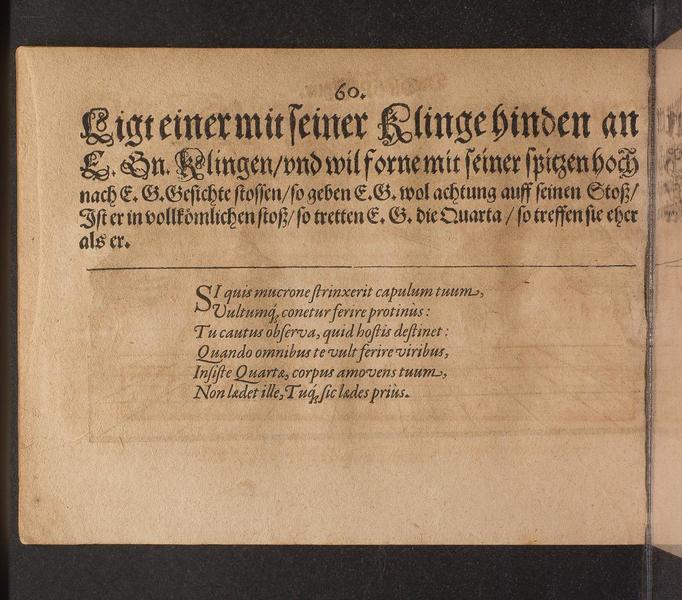 60.
Ligt einer mit seiner Klinge hinden an
E. Gn. Klingen/vnd wil forne mit seiner spitzen hoch
nach E. G. Gesichte stossen/so geben E. G. wol achtung auff seinen Stoß/
Ist er in vollkömlichen stoß/ so tretten E. G. die Quarta / so treffen sie eher
als er.
SI quis mucrone strinxerit capulum tuum,
Vultumq́; conetur ferire protinùs:
Tu cautus observa, quid hostis destinet:
Quando omnibus te vult ferire viribus,
Insiste Quartæ, corpus amovens tuum,
Non lædet ille, Tuq́; sic lædes priùs.